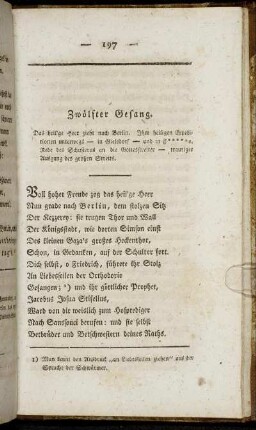 — 197 —
Zwölfter Gesang.
Das heil'ge Heer zieht nach Berlin. Ihre heiligen
unterwegs — in — und in S*****n.
Rede des an die —
Ausgang des großen Streits.
Voll hoher Freude zog das heil'ge Heer
Nun grade nach Berlin, dem stolzen Sitz
Der Ketzerey: sie trugen Thor und Wall
Der Königsstadt, wie dorten Simson einst
Des kleinen Gaza's großes Heckenthor,
Schon, in Gedanken, auf der Schulter fort.
Dich selbst, o Friedrich, führen ihr Stolz
An Liebesseilen der Orthodoxie
Gefangen; 1) und ihr göttlicher Prophet,
Jacobus Josua Stiselius,
Ward von dir weislich zum Hofprediger
Nach Sanssouci berufen: und sie selbst
Verbrüdet und Betschwestern deines Raths.
1) Man kennt den Ausdruck „an Liebesseilen ziehen" aus der
Sprache der Schwärmer.